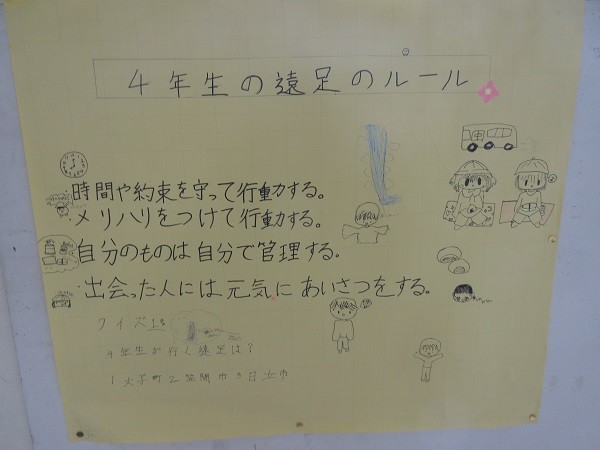 4年生の遠足のルール
・時間や約束を守って行動する。
・メリハリをつけて行動する。
・自分のものは自分で管理する。
・出会った人には元気にあいさつをする。
クイズ
4年生が行く遠足は?
1大子町2笠間市3日立市